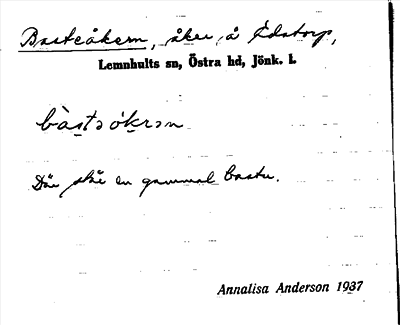 Basteåkern, åker å Edstorp,
Lemnhults sn, Östra hd, Jönk. l.
bàstsókrən
Där står en gammal bastu.
Annalisa Anderson 1937